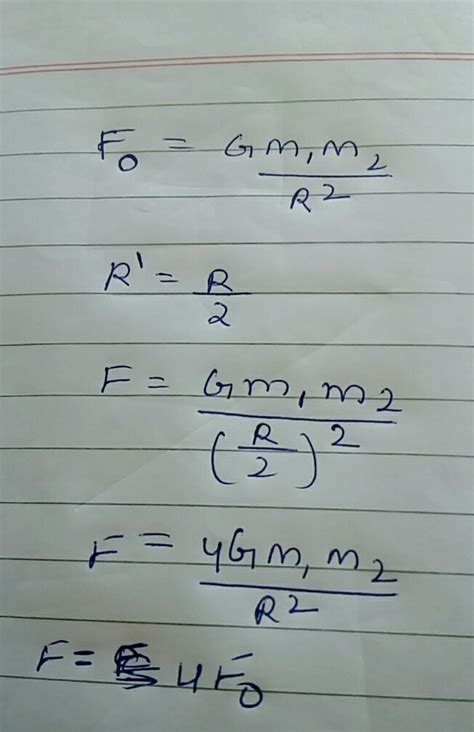 F₀ = Gm₁m₂/R²
R' = R/2
F = Gm₁m₂/(R/2)²
F = 4Gm₁m₂/R²
F = 4F₀